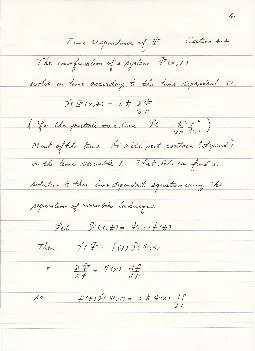 Time Dependence of Ψ Section 4.4
The configuration of a system Ψ(x,t)
evolves in time according to the time dependent S.E.
ĤΨ(x,t) = iħ ∂Ψ/∂t
( for the particle on a line Ĥ
Most of the time Ĥ will not contain (depend)
on the time variable t. That lets us find a
solution to this time dependent equation using the
separation of variables technique.
Let Ψ(x,t) = Ψ(x) f(t)
Then ĤΨ = f(t) ĤΨ(x)
∂Ψ/∂t = Ψ(x) df/dt
so f(t) ĤΨ(x) = iħ Ψ(x) df/dt